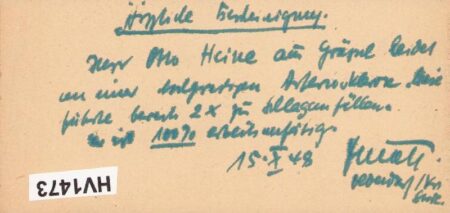 Ärztliche Bescheinigung.
Herr Otto Heine aus Gräpel leidet
an einer hochgradigen Arteriosklerose. Diese
führte bereits 2x zu Schlaganfällen.
Er ist 100% arbeitsunfähig.
15. X 48
HV1473